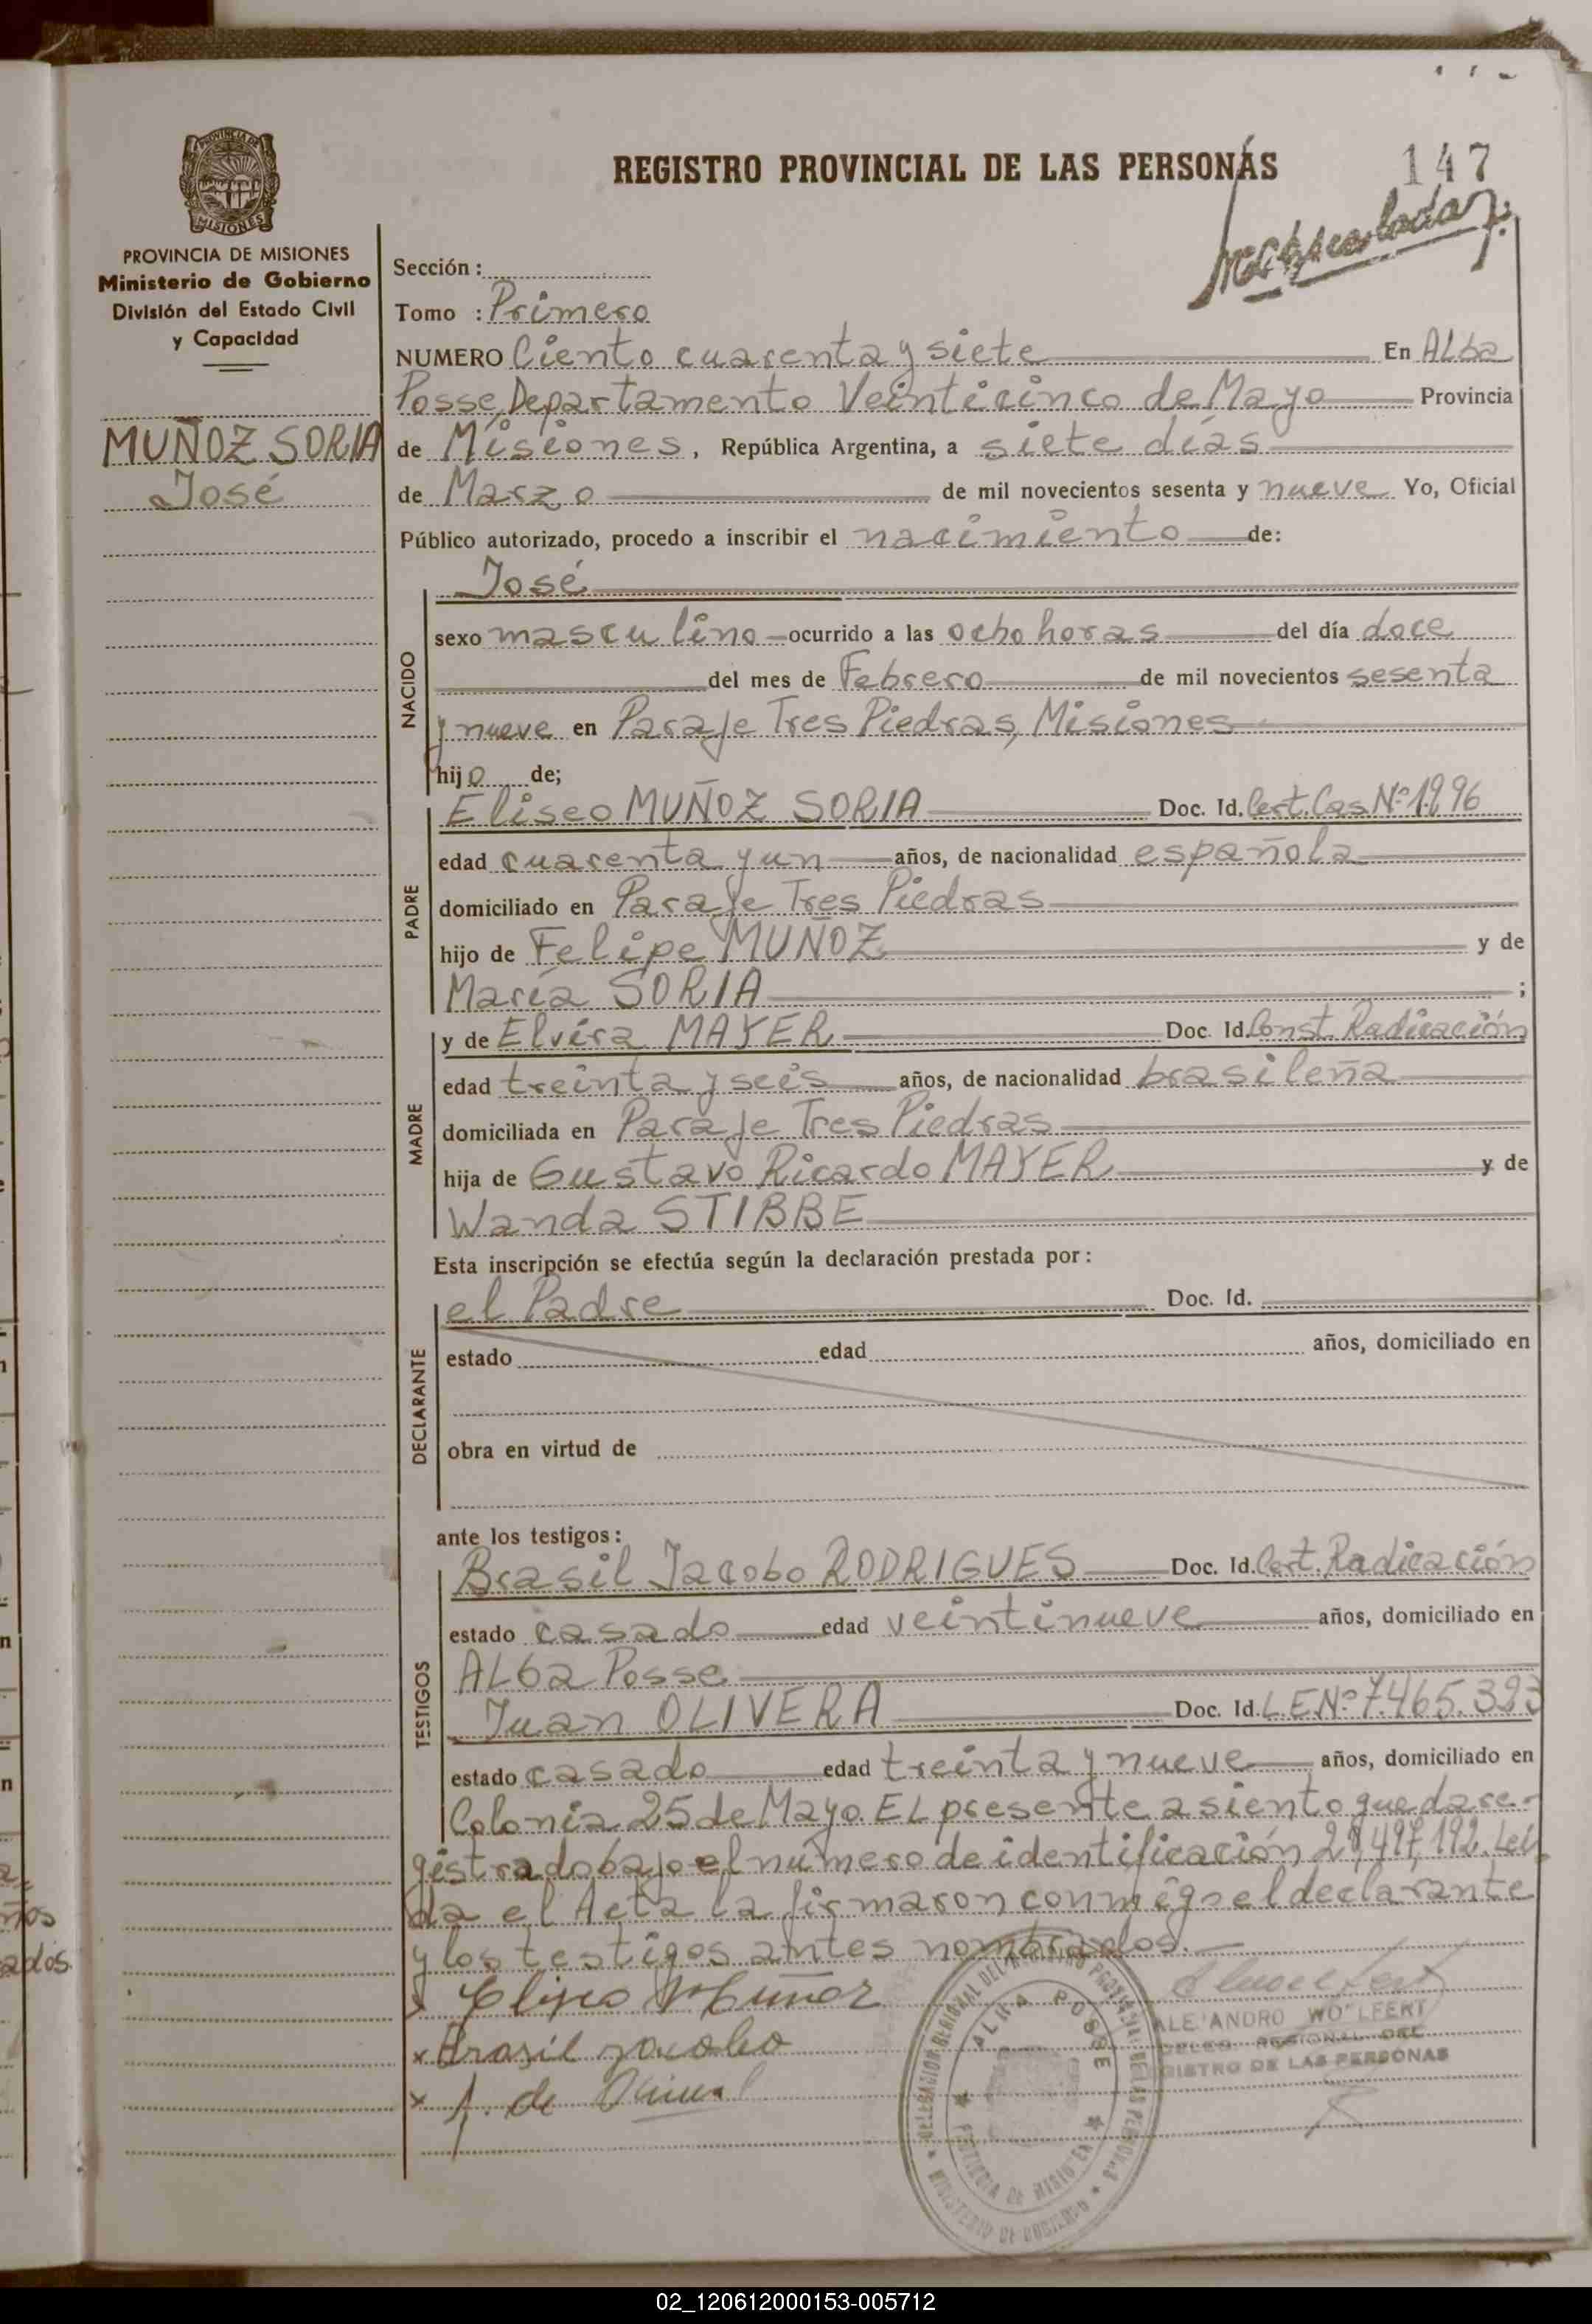 REGISTRO PROVINCIAL DE LAS PERSONAS
147
PROVINCIA DE MISIONES
Ministerio de Gobierno
División del Estado Civil
y Capacidad
MUÑOZ SORIA
José
Sección :
Tomo : Primero
NUMERO Ciento cuarenta y siete En Alba
Posse, Departamento Veinticinco de Mayo Provincia
de Misiones, República Argentina, a siete días
de Marzo de mil novecientos sesenta y nueve Yo, Oficial
Público autorizado, procedo a inscribir el nacimiento de:
NACIDO
José
sexo masculino ocurrido a las ocho horas del día doce
del mes de Febrero de mil novecientos sesenta
y nueve en Paraje Tres Piedras, Misiones
hijo de;
PADRE
Eliseo MUÑOZ SORIA Doc. Id. Cert. Cas. Nº 1996
edad cuarenta y un años, de nacionalidad española
domiciliado en Paraje Tres Piedras
hijo de Felipe MUÑOZ y de
María SORIA ;
MADRE
y de Elvira MAYER Doc. Id. Const. Radicación
edad treinta y seis años, de nacionalidad brasileña
domiciliada en Paraje Tres Piedras
hija de Gustavo Ricardo MAYER y de
Wanda STIBBE
Esta inscripción se efectúa según la declaración prestada por :
DECLARANTE
el Padre Doc. Id.
estado edad años, domiciliado en
obra en virtud de
ante los testigos :
TESTIGOS
Brasil Jacobo RODRIGUES Doc. Id. Cert. Radicación
estado casado edad veintinueve años, domiciliado en
Alba Posse
Juan OLIVERA Doc. Id. L.E.Nº 7.465.323
estado casado edad treinta y nueve años, domiciliado en
Colonia 25 de Mayo. El presente asiento queda re-
gistrado bajo el número de identificación 20,497,192. Leí
da el Acta la firmaron conmigo el declarante
y los testigos antes nombrados.
x Eliseo Muñoz
x Brasil Jacobo
ALEJANDRO WOLFERT
DELEG. REGIONAL DEL
REGISTRO DE LAS PERSONAS
ALBA POSSE
PROVINCIA DE MISIONES
MINISTERIO DE GOBIERNO
02_120612000153-005712